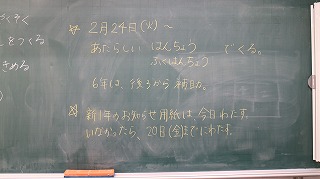 やくそく
をつくる
きめる
☆ 2月24日(火)～
あたらしい はんちょう でくる。
ふくはんちょう
6年は、後ろから補助。
☆ 新1年のお知らせ用紙は、今日わたす。
いなかったら、20日(金)までにわたす。